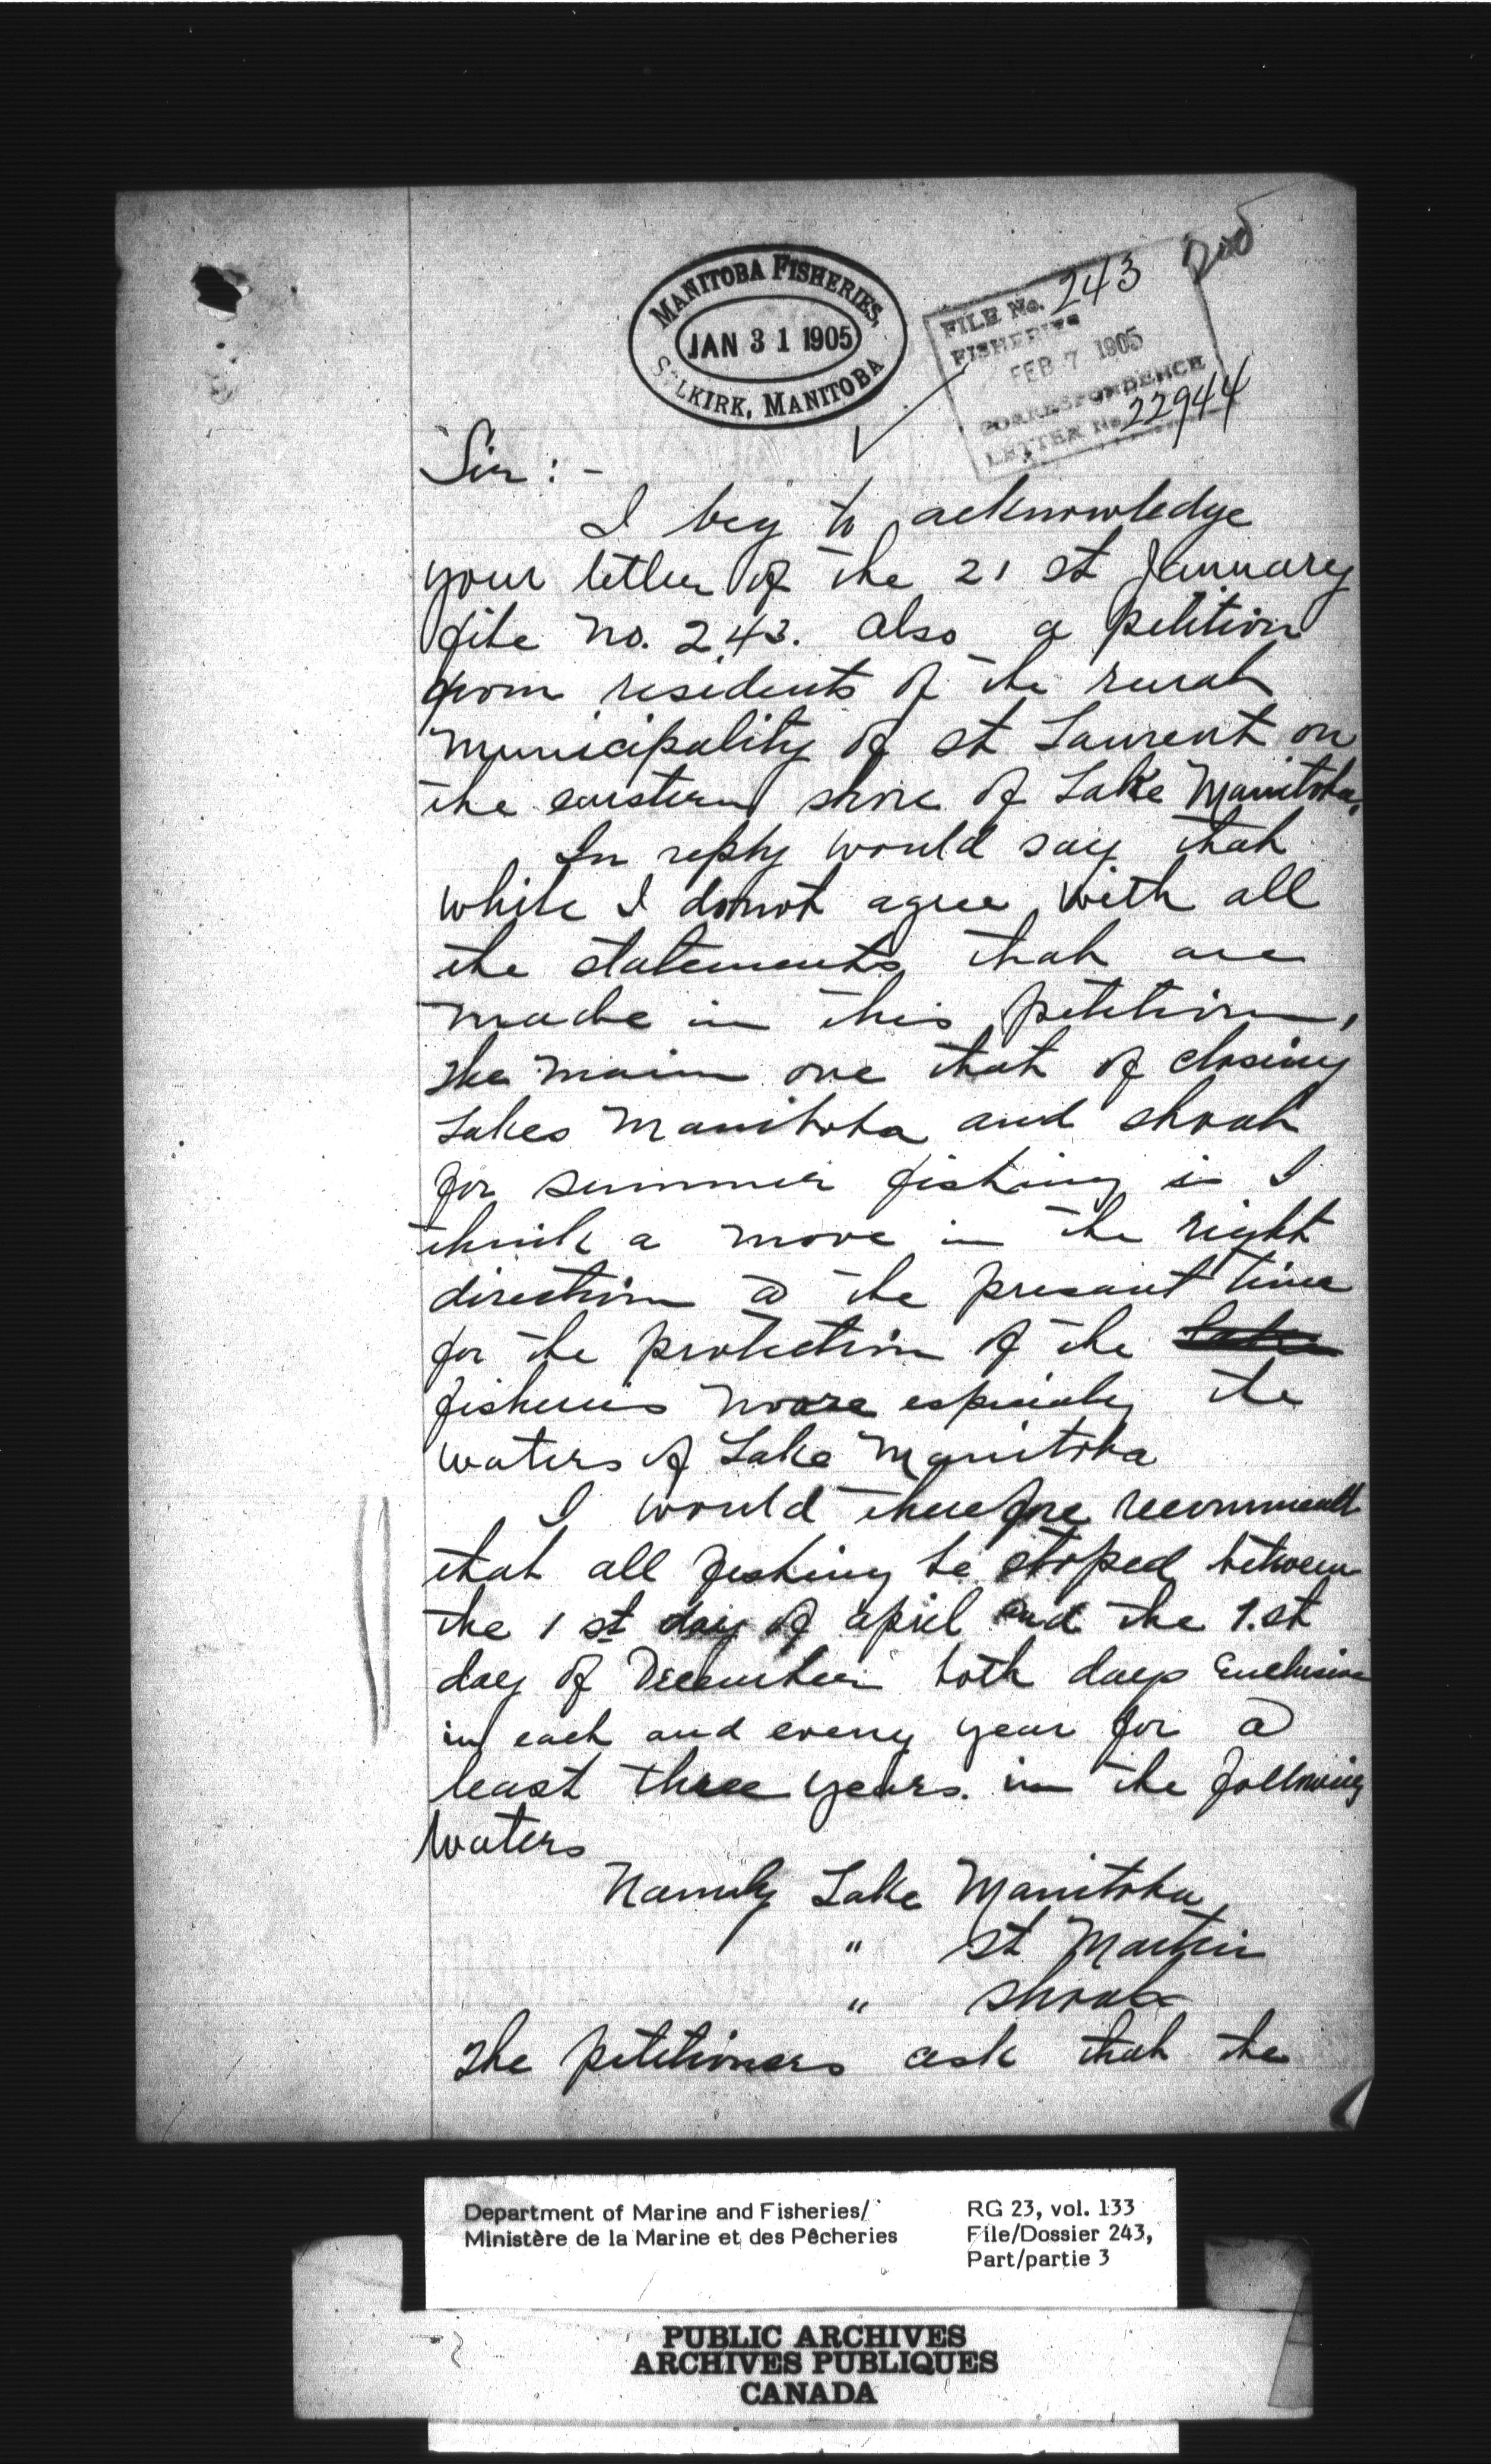 MANITOBA FISHERIES,
JAN 31 1905
SELKIRK, MANITOBA
FILE No. 243
FISHERIES
FEB 7 1905
CORRESPONDENCE
LETTER No. 22944
Sir : -
I beg to acknowledge
your letter of the 21 st January
file no. 243. also a petition
from residents of the rural
municipality of st Laurent on
the eastern shore of Lake Manitoba.
In reply would say that
while I do not agree with all
the statements that are
made in this petition,
the main one that of closing
Lakes Manitoba and shoal
for summer fishing is I
think a move in the right
direction @ the present time
for the protection of the
fisheries more especialy the
waters of Lake Manitoba
I would therefore recommend
that all fishing be stoped between
the 1 st day of april and the 1.st
day of December both days Enclusive
in each and every year for @
least three years. in the following
waters
Namely Lake Manitoba
" st Martin
" Shoal
The petitioners ask that the
Department of Marine and Fisheries/
Ministère de la Marine et des Pêcheries
RG 23, vol. 133
File/Dossier 243,
Part/partie 3
PUBLIC ARCHIVES
ARCHIVES PUBLIQUES
CANADA